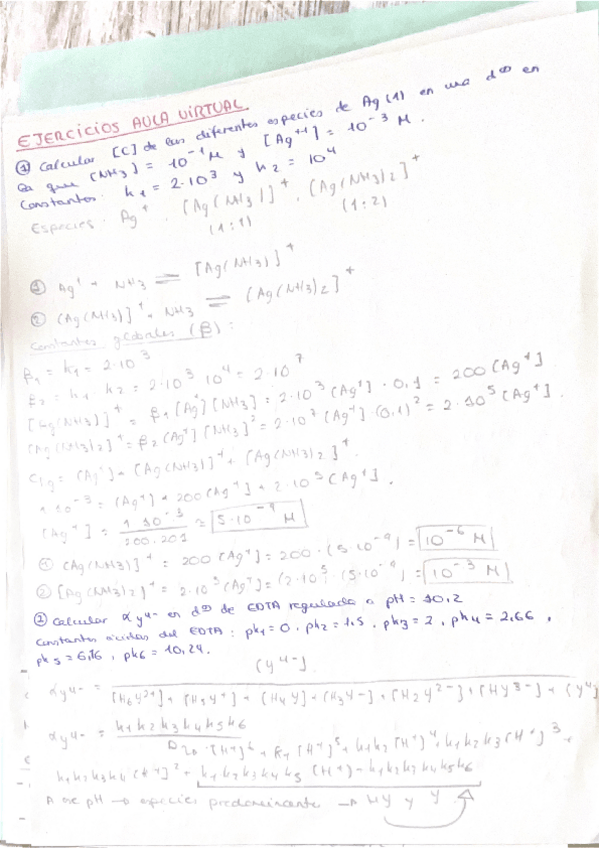 EJERCICIOS AULA VIRTUAL
① Calcular [C] de las diferentes especies de Ag(1) en una dᵒⁿ en
la que [NH3] = 10⁻¹ M y [Ag⁺¹] = 10⁻³ M.
Constantes: k1 = 2·10³ y k2 = 10⁴
Especies: Ag⁺, [Ag(NH3)]⁺, [Ag(NH3)2]⁺
(1:1) (1:2)
① Ag⁺ + NH3 ⇌ [Ag(NH3)]⁺
② [Ag(NH3)]⁺ + NH3 ⇌ [Ag(NH3)2]⁺
Constantes globales (β):
β1 = k1 = 2·10³
β2 = k1·k2 = 2·10³ 10⁴ = 2·10⁷
[Ag(NH3)]⁺ = β1 [Ag⁺][NH3] = 2·10³ [Ag⁺]·0,1 = 200 [Ag⁺]
[Ag(NH3)2]⁺ = β2 [Ag⁺][NH3]² = 2·10⁷ [Ag⁺]·(0,1)² = 2·10⁵ [Ag⁺].
CAg = [Ag⁺] + [Ag(NH3)]⁺ + [Ag(NH3)2]⁺.
1·10⁻³ = [Ag⁺] + 200 [Ag⁺] + 2·10⁵ [Ag⁺].
[Ag⁺] = 1·10⁻³ / 200.201 ≈ 5·10⁻⁹ M
① [Ag(NH3)]⁺ = 200 [Ag⁺] = 200·(5·10⁻⁹) = 10⁻⁶ M
② [Ag(NH3)2]⁺ = 2·10⁵ [Ag⁺] = (2·10⁵·(5·10⁻⁹) = 10⁻³ M
② Calcular αy4- en dᵒⁿ de EDTA regulada a pH = 10,2
Constantes ácidas del EDTA: pk1 = 0, pk2 = 1,5, pk3 = 2, pk4 = 2,66,
pk5 = 6,16, pk6 = 10,24.
[Y⁴⁻]
αy4- = [H6Y²⁺] + [H5Y⁺] + [H4Y] + [H3Y⁻] + [H2Y²⁻] + [HY³⁻] + [Y⁴⁻]
αy4- = k1k2k3k4k5k6
[H⁺]⁶ + k1 [H⁺]⁵ + k1k2 [H⁺]⁴ + k1k2k3 [H⁺]³ +
k1k2k3k4 [H⁺]² + k1k2k3k4k5 [H⁺] + k1k2k3k4k5k6
A ese pH → especies predominante → HY y Y